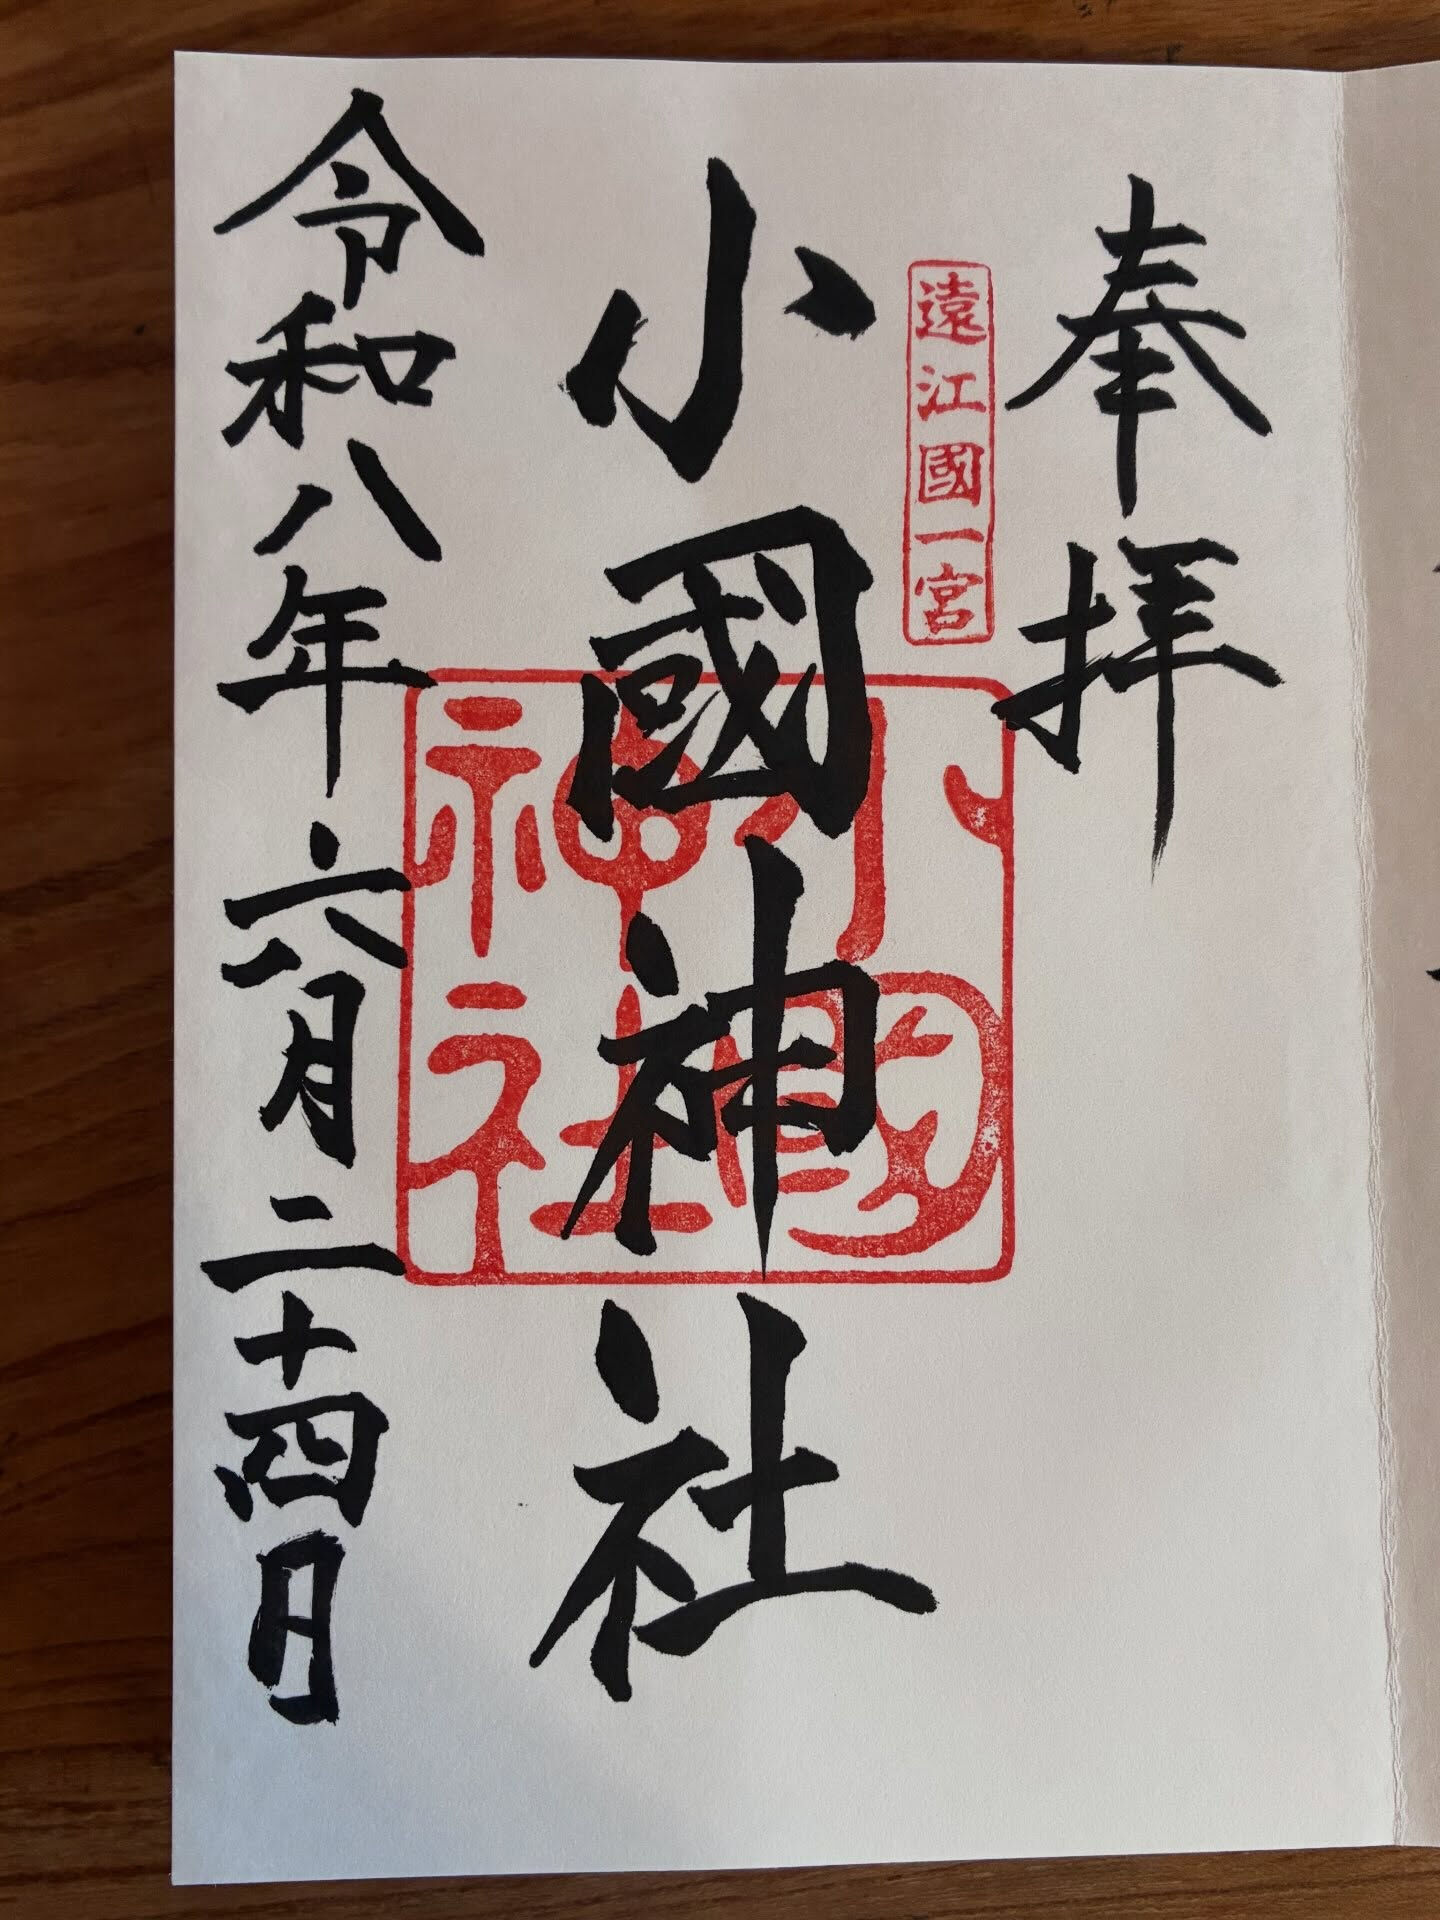 奉拝
遠江國一宮
小國神社
小國
神社
令和八年六月二十四日